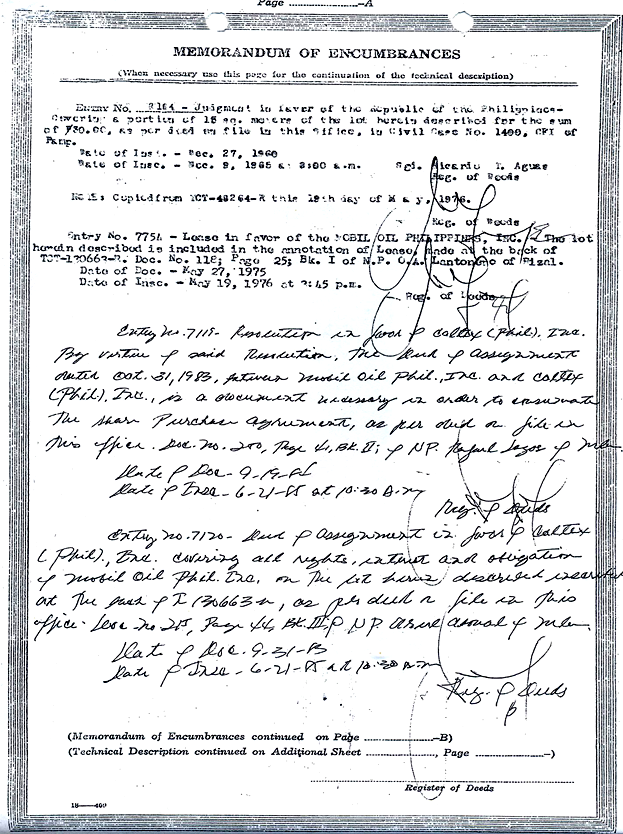 Page ............–A
MEMORANDUM OF ENCUMBRANCES
(When necessary use this page for the continuation of the technical description)
ENTRY No. 8164 - Judgment in favor of the Republic of the Philippines-
Covering a portion of 15 sq. meters of the lot herein described for the sum
of ₱30.00, as per deed on file in this Office, in Civil Case No. 1400, CFI of
Pamp.
Date of Inst. - Dec. 27, 1960
Date of Insc. - Dec. 9, 1965 at 8:00 a.m. Sgd. Ricardo Aguas
Reg. of Deeds
NOTE: Copied from TCT-48264-R this 19th day of M a y, 1976.
Reg. of Deeds
Entry No. 7754 - Lease in favor of the MOBIL OIL PHILIPPINES, INC. The lot
herein described is included in the annotation of Lease, made at the back of
TCT-130663-R. Doc. No. 118; Page 25; Bk. I of N.P. of Rizal.
Date of Doc. - May 27, 1975
Date of Insc. - May 19, 1976 at 2:45 p.m.
Reg. of Deeds
Entry No. 7119- Resolution in favor of Caltex (Phil). Inc.
By virtue of said Resolution, the Deed of Assignment
dated Oct. 31, 1983, between Mobil Oil Phil., Inc. and Caltex
(Phil). Inc., is a document necessary in order to consummate
the share Purchase agreement, as per deed on file in
this office. Doc. no. 200, Page 41, Bk. II; of NP. Rafael of Mla.
Date of Doc-
Date of Insc - 6-21-85 at 10:30 a.m
Reg. of Deeds
Entry no. 7120- Deed of Assignment in favor of Caltex
(Phil)., Inc. covering all rights, interest and obligation
of Mobil Oil Phil. Inc. on the lot herein described
at the back of T 130663-R, as per deed on file in this
office. Doc no 215, Page 44, Bk. III, of NP. of Mla.
Date of Doc.
Date of Insc. - 6-21-85 at 10:30 a.m
Reg. of Deeds
(Memorandum of Encumbrances continued on Page ............–B)
(Technical Description continued on Additional Sheet ............, Page ............–)
Register of Deeds